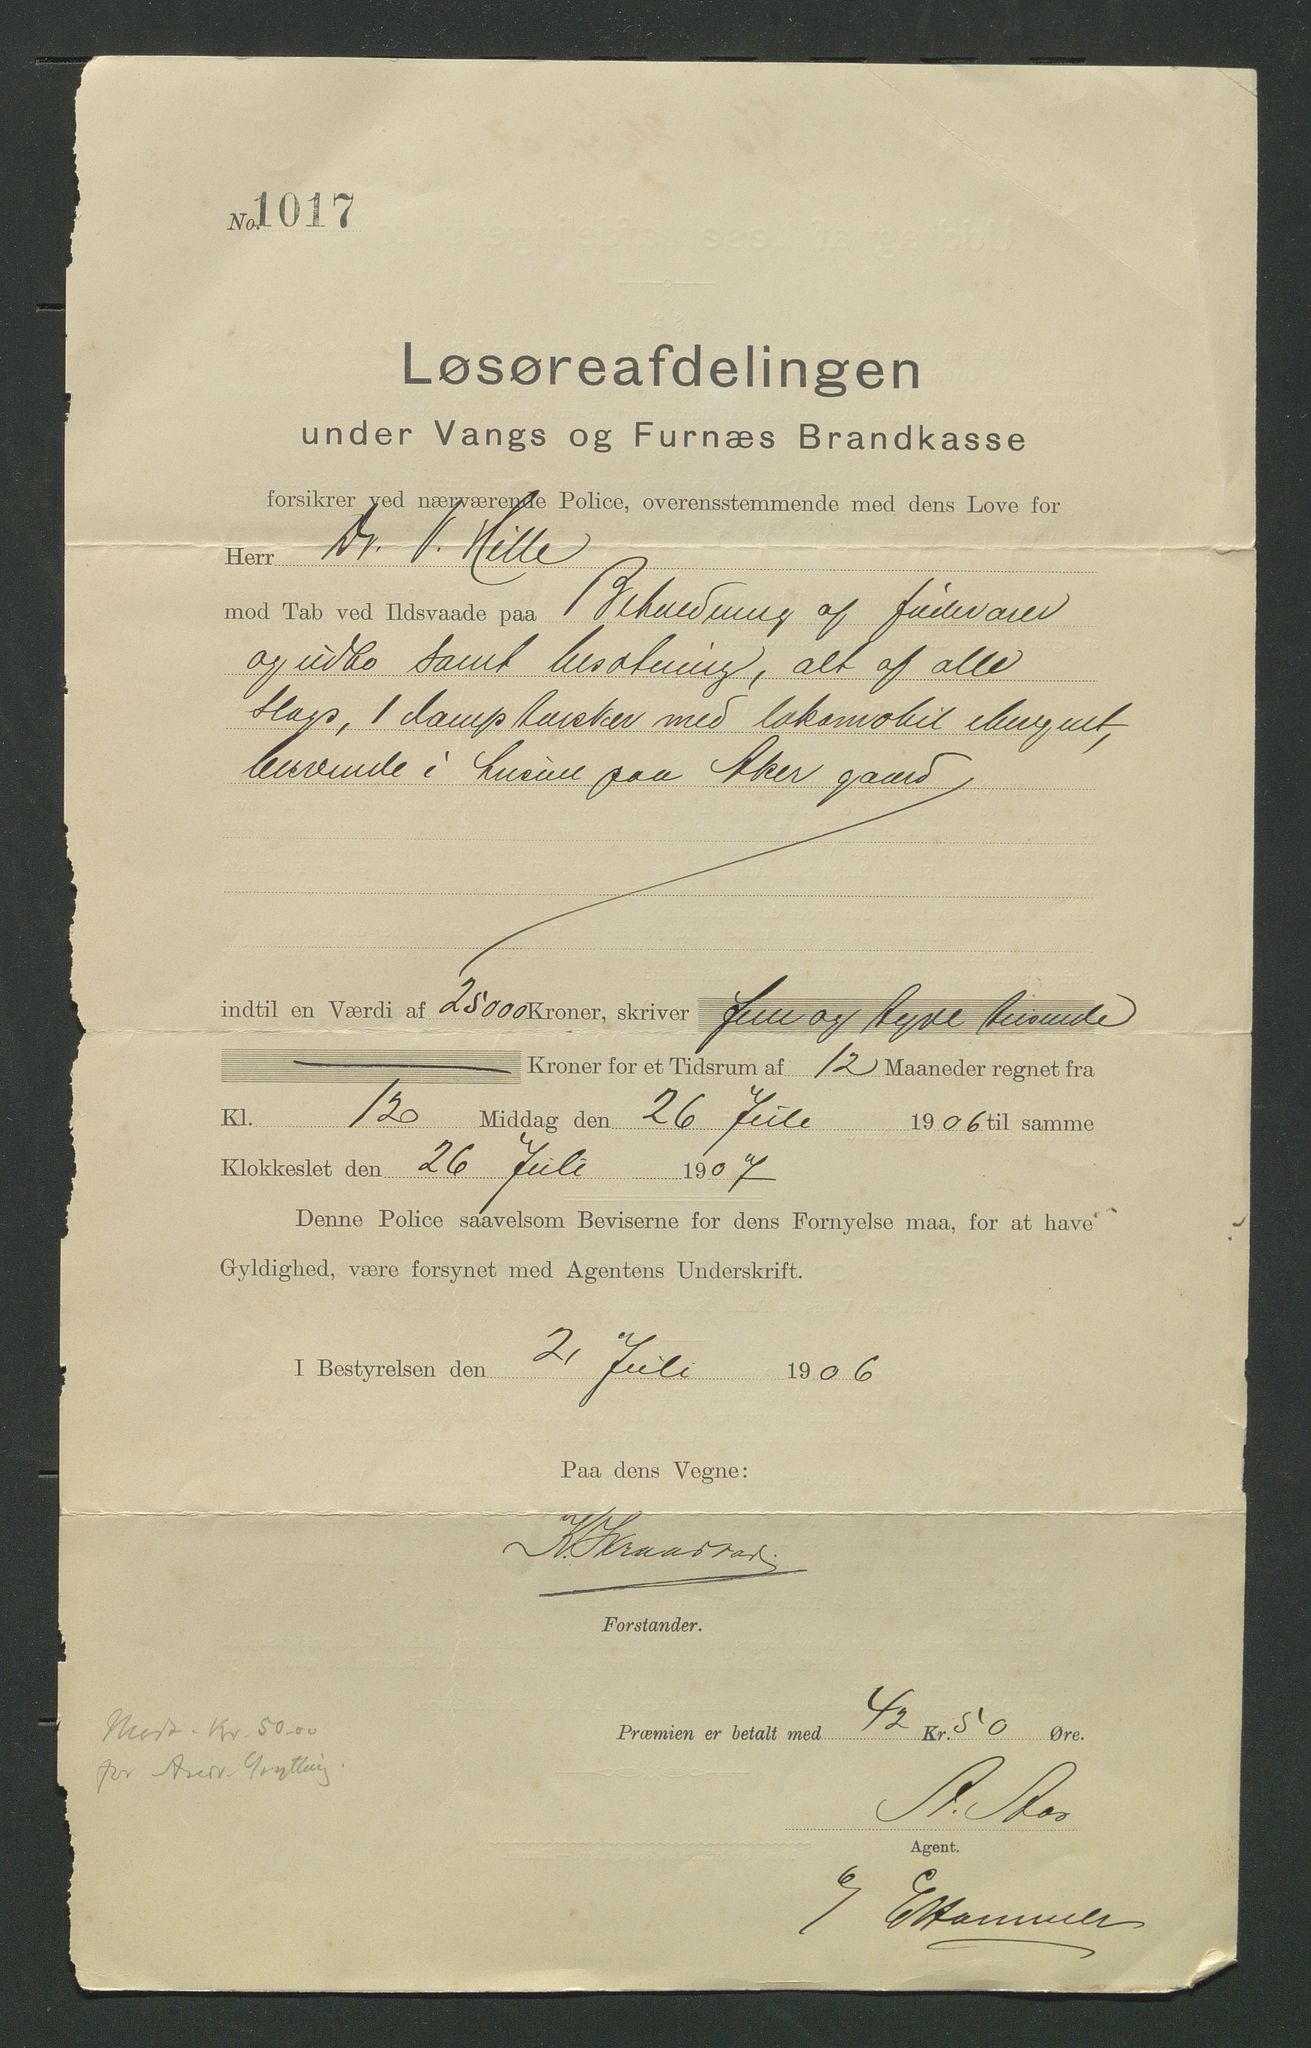 No. 1017
Løsøreafdelingen
under Vangs og Furnæs Brandkasse
forsikrer ved nærværende Police, overensstemmende med dens Love for
Herr Dr. V. Hille
mod Tab ved Ildsvaade paa Beholdning af
og indbo samt besætning, alt af alle
slags, 1 damptærsker med lokomobil
beroende i husene paa Aker gaard
indtil en Værdi af 25000 Kroner, skriver fem og tyve tusende
Kroner for et Tidsrum af 12 Maaneder regnet fra
Kl. 12 Middag den 26 Juli 1906 til samme
Klokkeslet den 26 Juli 1907
Denne Police saavelsom Beviserne for dens Fornyelse maa, for at have
Gyldighed, være forsynet med Agentens Underskrift.
I Bestyrelsen den 21 Juli 1906
Paa dens Vegne:
K. Skraastad
Forstander.
Præmien er betalt med 42 Kr. 50 Øre.
Kr. 50.00
for
Agent.
E Hammer